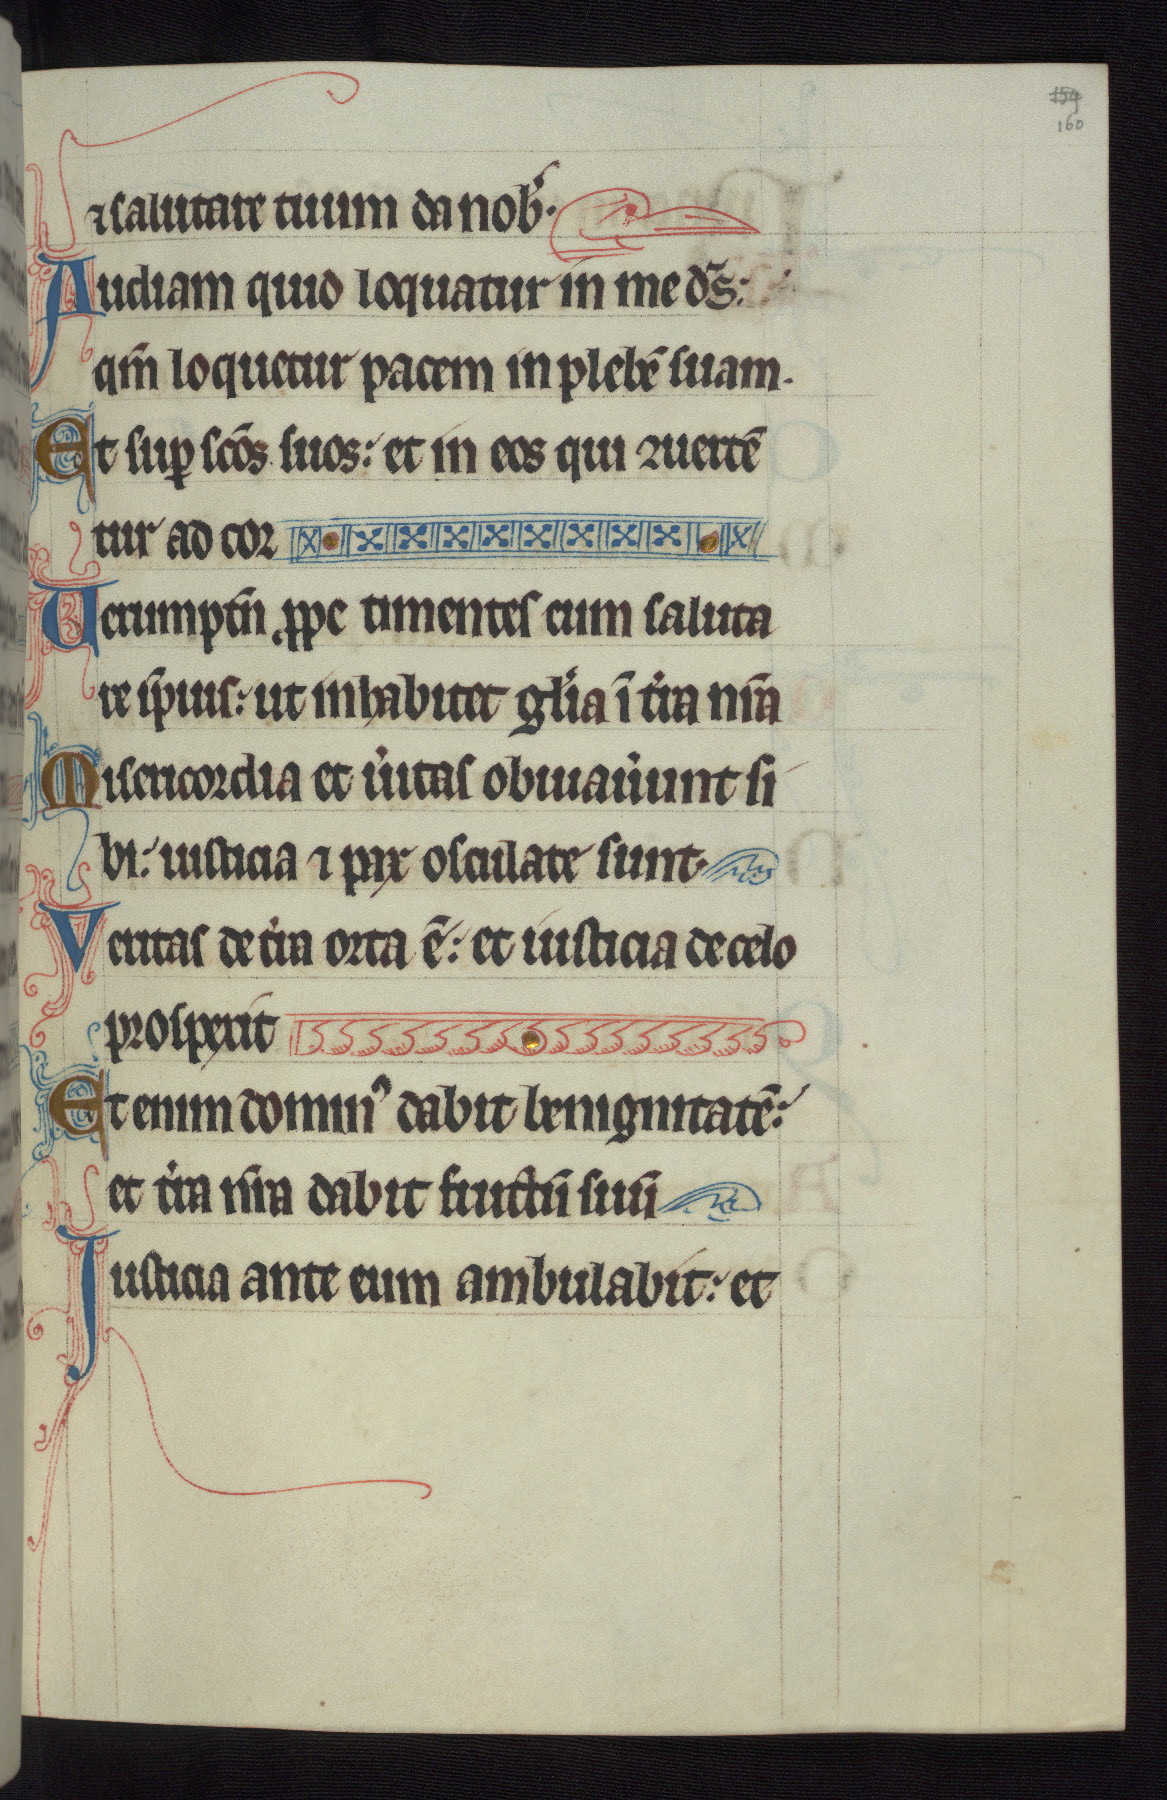 159
160
⁊ salutare tuum da nob̾.
Audiam quid loquatur in me dс̄:
qm̄ loquetur pacem in plebē suam.
Et sup̱ scōs suos: et in eos qui ꝯuertē
tur ad cor
Uerumptn̄ ꝓpe timentes eum saluta
re ip̄ius: ut inhabitet gl̓ia ī t̓ra nr̄a
Misericordia et u̓itas obuiau̓unt si
bi: iusticia ⁊ pax osculate sunt.
Veritas de t̓ra orta ē: et iusticia de celo
prosperit
Et enim dominꝰ dabit benignitatē:
et t̓ra nr̄a dabit fructū suū
Iusticia ante eum ambulabit: et